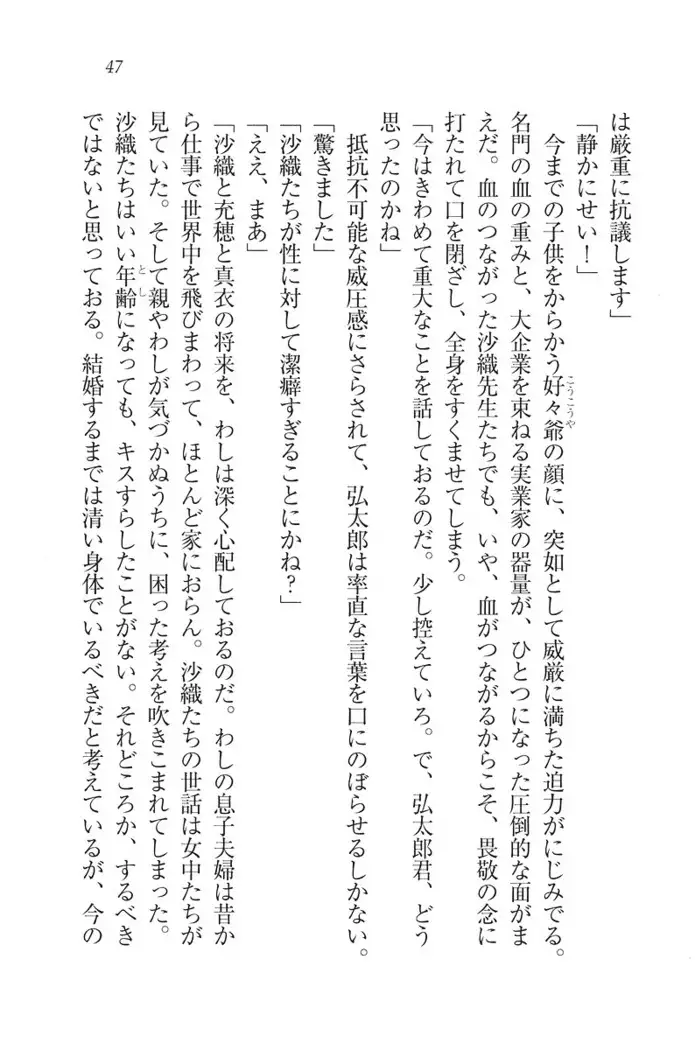 47
は厳重に抗議します」
「静かにせい！」
　今までの子供をからかう好々爺の顔に、突如として威厳に満ちた迫力がにじみでる。
こうこうや
名門の血の重みと、大企業を束ねる実業家の器量が、ひとつになった圧倒的な面がま
えだ。血のつながった沙織先生たちでも、いや、血がつながるからこそ、畏敬の念に
打たれて口を閉ざし、全身をすくませてしまう。
「今はきわめて重大なことを話しておるのだ。少し控えていろ。で、弘太郎君、どう
思ったのかね」
　抵抗不可能な威圧感にさらされて、弘太郎は率直な言葉を口にのぼらせるしかない。
「驚きました」
「沙織たちが性に対して潔癖すぎることにかね？」
「ええ、まあ」
「沙織と充穂と真衣の将来を、わしは深く心配しておるのだ。わしの息子夫婦は昔か
ら仕事で世界中を飛びまわって、ほとんど家におらん。沙織たちの世話は女中たちが
見ていた。そして親やわしが気づかぬうちに、困った考えを吹きこまれてしまった。
沙織たちはいい年齢になっても、キスすらしたことがない。それどころか、するべき
とし
ではないと思っておる。結婚するまでは清い身体でいるべきだと考えているが、今の